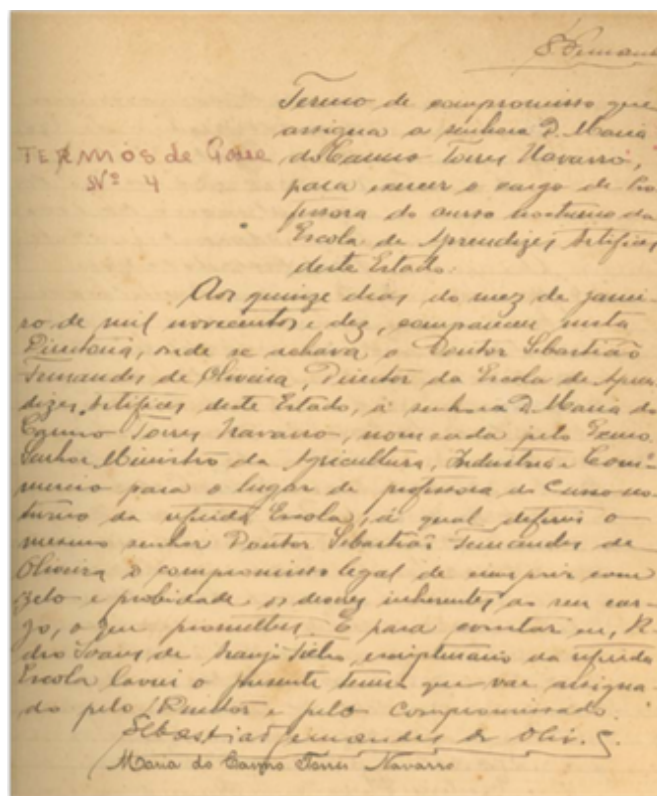 Termo de compromisso que
assigna a senhora D. Maria
do Carmo Torres Navarro,
TERMOS de
Nº 4
para exercer o cargo de Pro
fessora do curso nocturno da
Escola de Aprendizes Artifices
deste Estado.
Aos quinze dias do mez de janei-
ro de mil novecentos e dez, compareceu nesta
Directoria, onde se achava o Doutor Sebastião
Fernandes de Oliveira, Director da Escola de Apren
dizes Artifices deste Estado, a senhora D. Maria do
Carmo Torres Navarro, nomeada pelo Exmo
Senhor Ministro da Agricultura, Industria e Com-
mercio para o lugar de professora do Curso no-
turno da referida Escola, a qual deferiu o
mesmo senhor Doutor Sebastião Fernandes de
Oliveira o compromisso legal de cumprir com
zelo e probidade os deveres inherentes ao seu car-
go, o que prometteu. E para constar eu,
Soares de escripturario da referida
Escola lavrei o presente termo que vae assigna-
do pelo Director e pelo compromissado.
Sebastião Fernandes de Oliv.
Maria do Carmo Torres Navarro